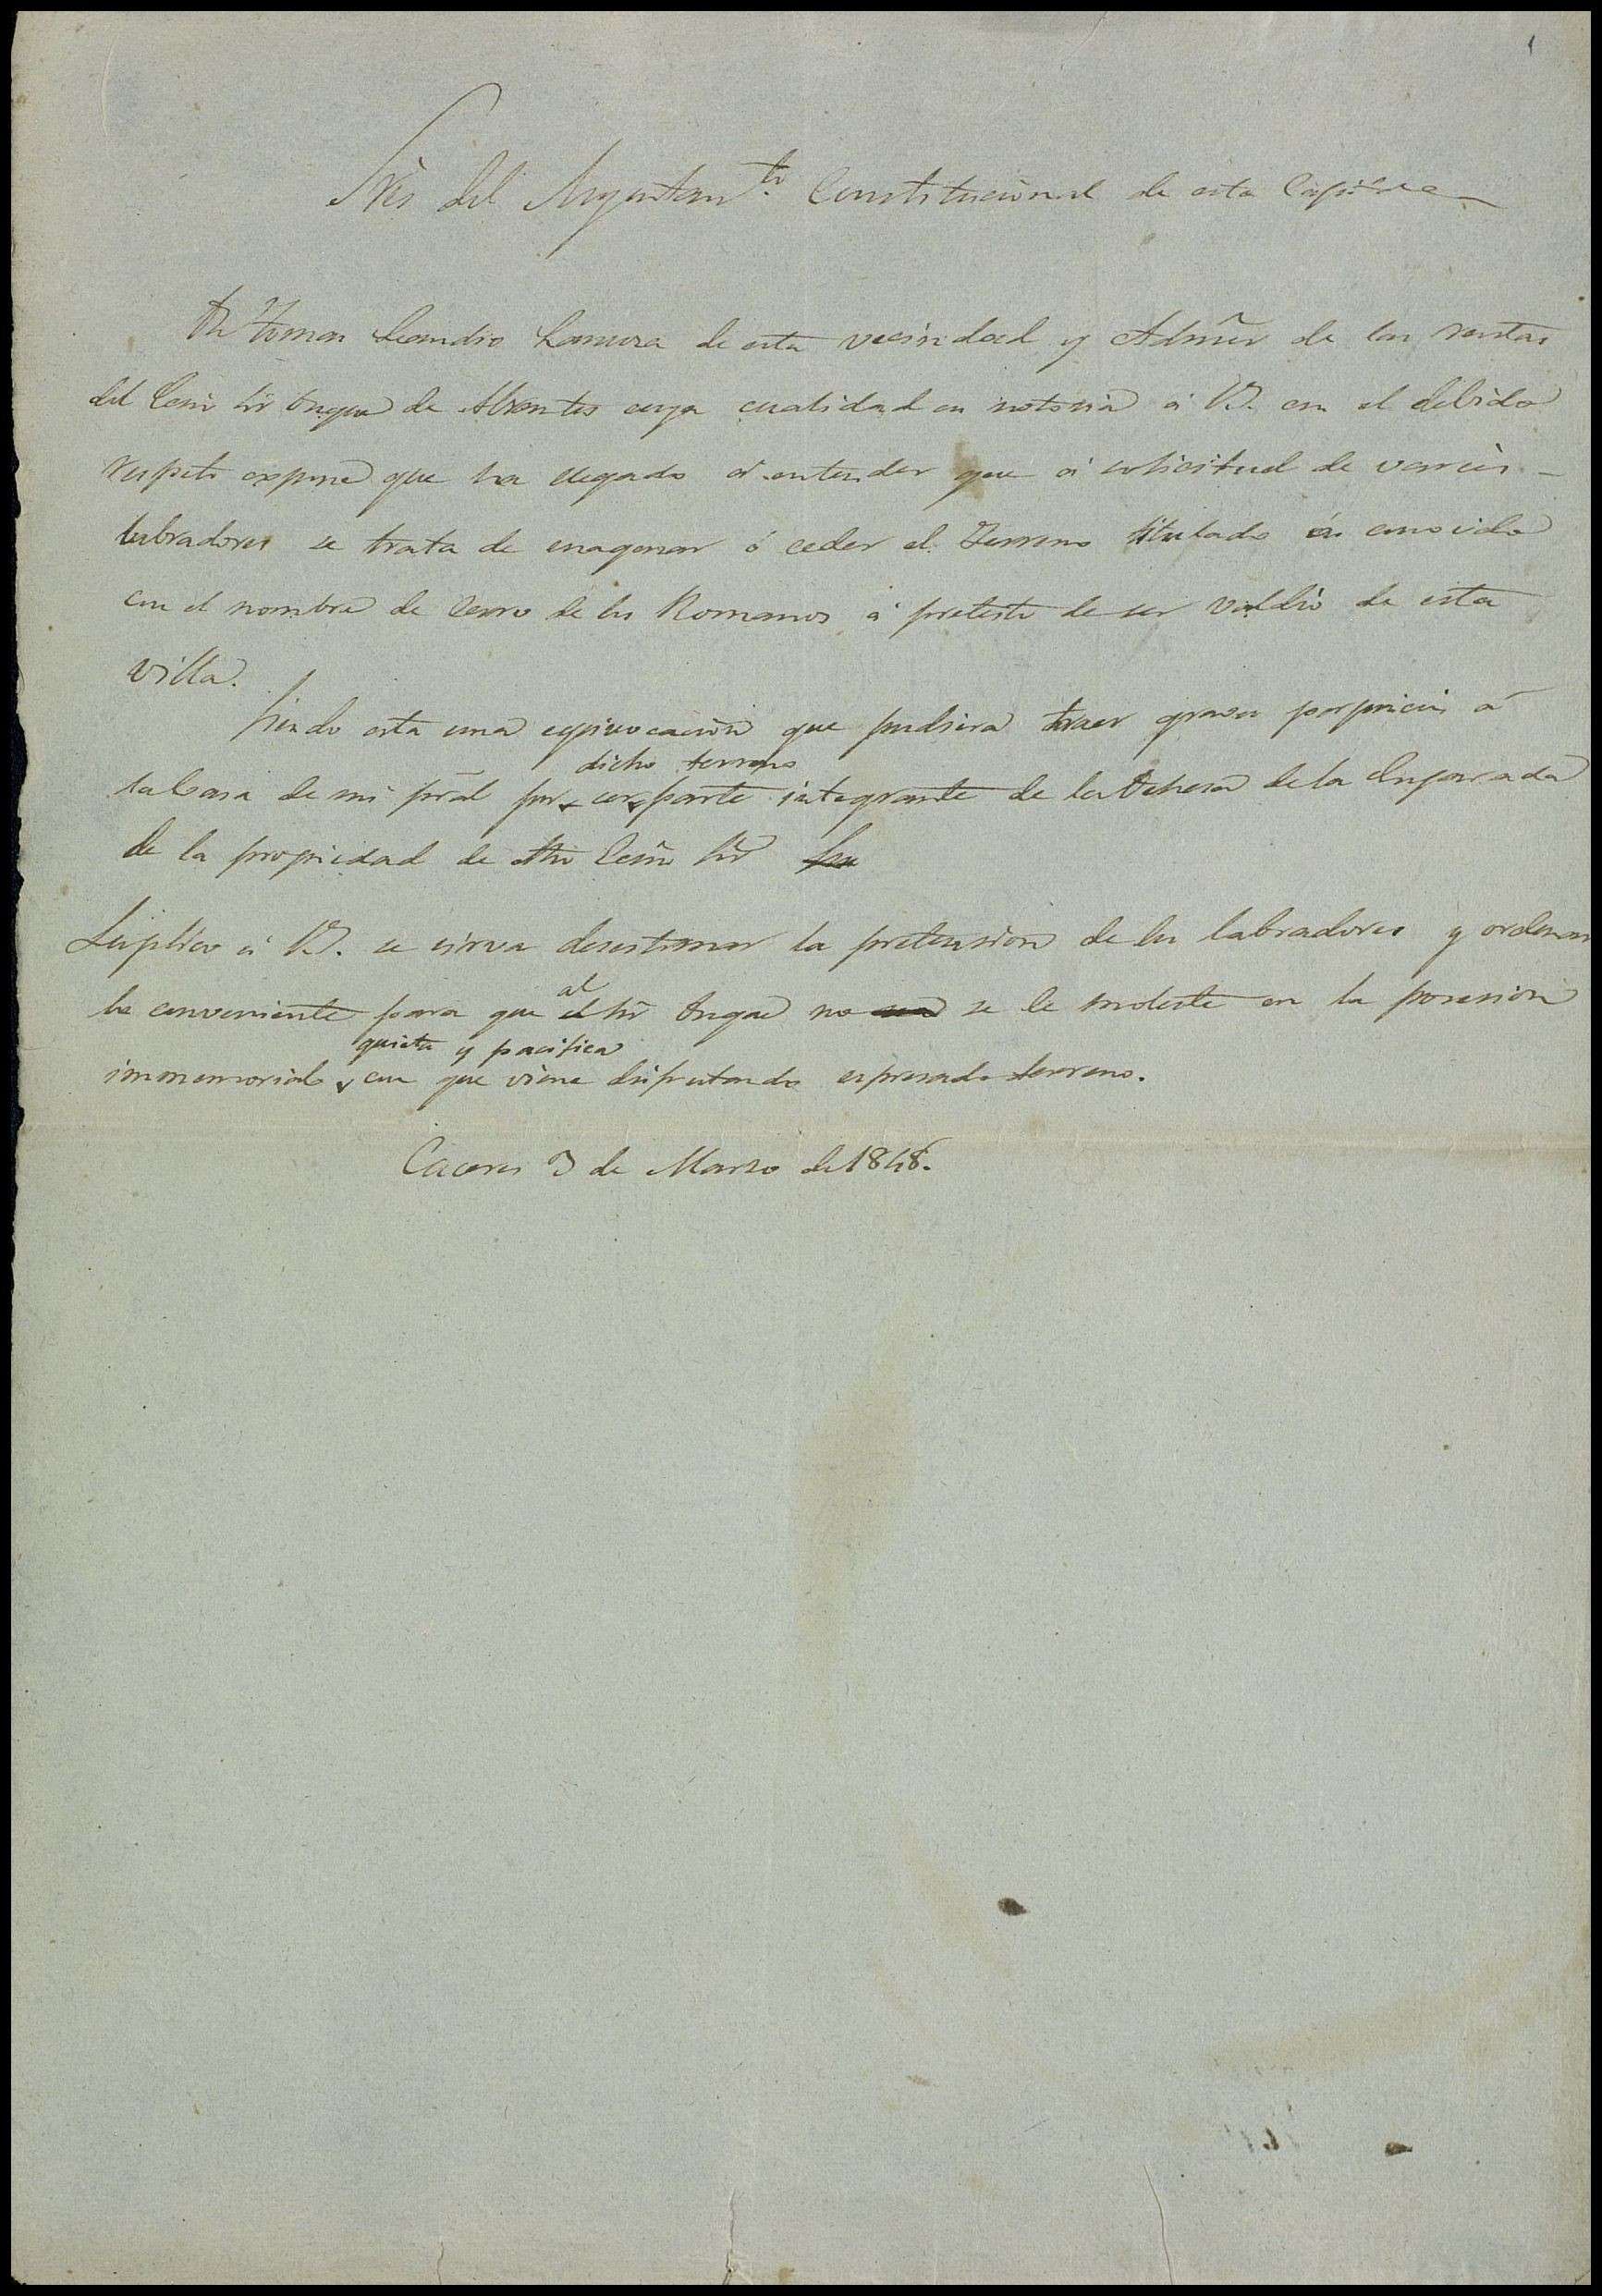 Sres del Ayuntam.to Constitucional de esta Capital
Dn Tomas Leandro de esta vecindad y Admor de las rentas
del Ecmo Sr Duque de Abrantes cuya cualidad es notoria á V.S. con el debido
respeto expone que ha llegado á entender que á solicitud de varios
labradores se trata de enagenar ó ceder el Terreno titulado ó conocido
con el nombre de Cerro de los Romanos á pretesto de ser valdio de esta
villa.
Siendo esta una equivocacion que pudiera traer graves perjuicios á
dicho terreno
la Casa de mi pral por ser parte integrante de la Dehesa de la
de la propiedad de dho Ecmo Sr
Suplico á V.S. se sirva desestimar la pretension de los labradores y ordenar
al
lo conveniente para que el Sr Duque no se le moleste en la posesion
quieta y pacifica
inmemorial con que viene disfrutando espresado terreno.
Caceres 3 de Marzo de 1848.